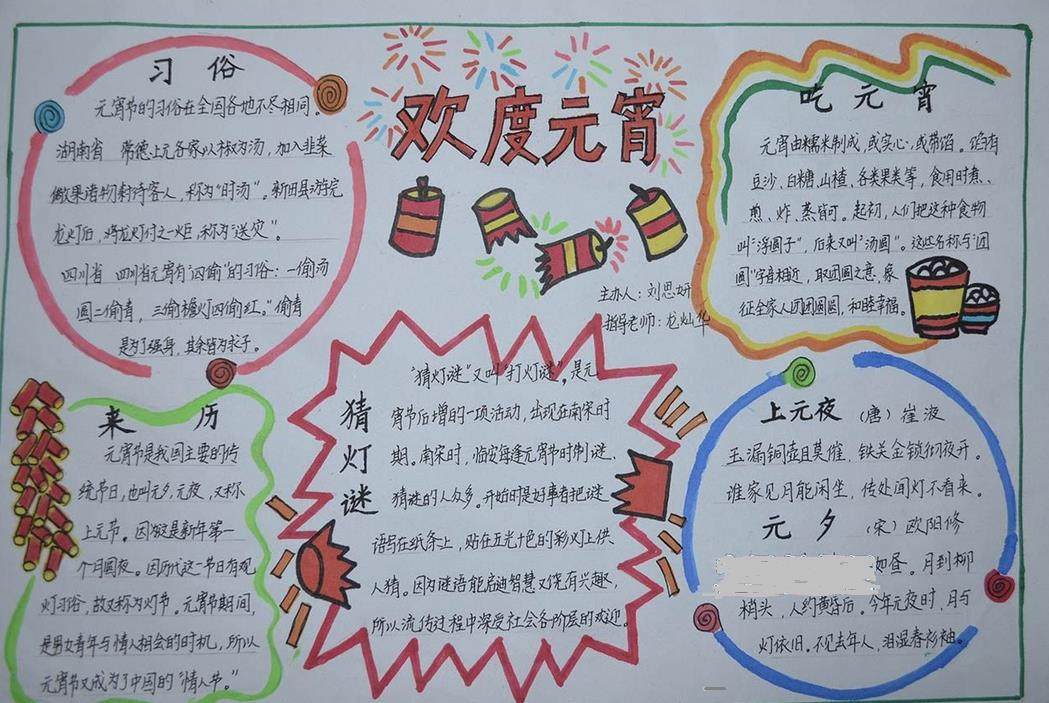 欢度元宵
主办人：刘思妍
指导老师：龙灿华
习俗
元宵节的习俗在全国各地不尽相同。
湖南省 常德上元各家以椒为汤，加入韭菜
做果诸物制待客人，称为“时汤”。新田县游完
龙灯后，将龙灯付之一炬，称为“送灾”。
四川省 四川省元宵有“四偷”的习俗：一偷汤
圆二偷青，三偷檐灯四偷红。”偷青
是为了强身，其余皆为求子。
吃元宵
元宵由糯米制成，或实心，或带馅。馅有
豆沙、白糖、山楂、各类果类等，食用时煮、
煎、炸、蒸皆可。起初，人们把这种食物
叫“浮圆子”，后来又叫“汤圆”。这些名称与“团
圆”字音相近，取团圆之意，象
征全家人团团圆圆，和睦幸福。
来历
元宵节是我国主要的传
统节日，也叫元夕、元夜，又称
上元节。因为这是新年第一
个月圆夜。因历代这一节日有观
灯习俗，故又称为灯节。元宵节期间，
是男女青年与情人相会的时机，所以
元宵节又成为了中国的“情人节。”
猜灯谜
“猜灯谜”又叫“打灯谜”。是元
宵节后增的一项活动，出现在南宋时
期。南宋时，临安每逢元宵节时制谜、
猜谜的人众多。开始时是好事者把谜
语写在纸条上，贴在五光十色的彩灯上供
人猜。因为谜语能启迪智慧又饶有兴趣，
所以流传过程中深受社会各阶层的欢迎。
上元夜（唐）崔液
玉漏铜壶且莫催，铁关金锁彻夜开。
谁家见月能闲坐，传处闻灯不看来。
元夕（宋）欧阳修
如昼。月到柳
梢头，人约黄昏后。今年元夜时，月与
灯依旧。不见去年人，泪湿春衫袖。